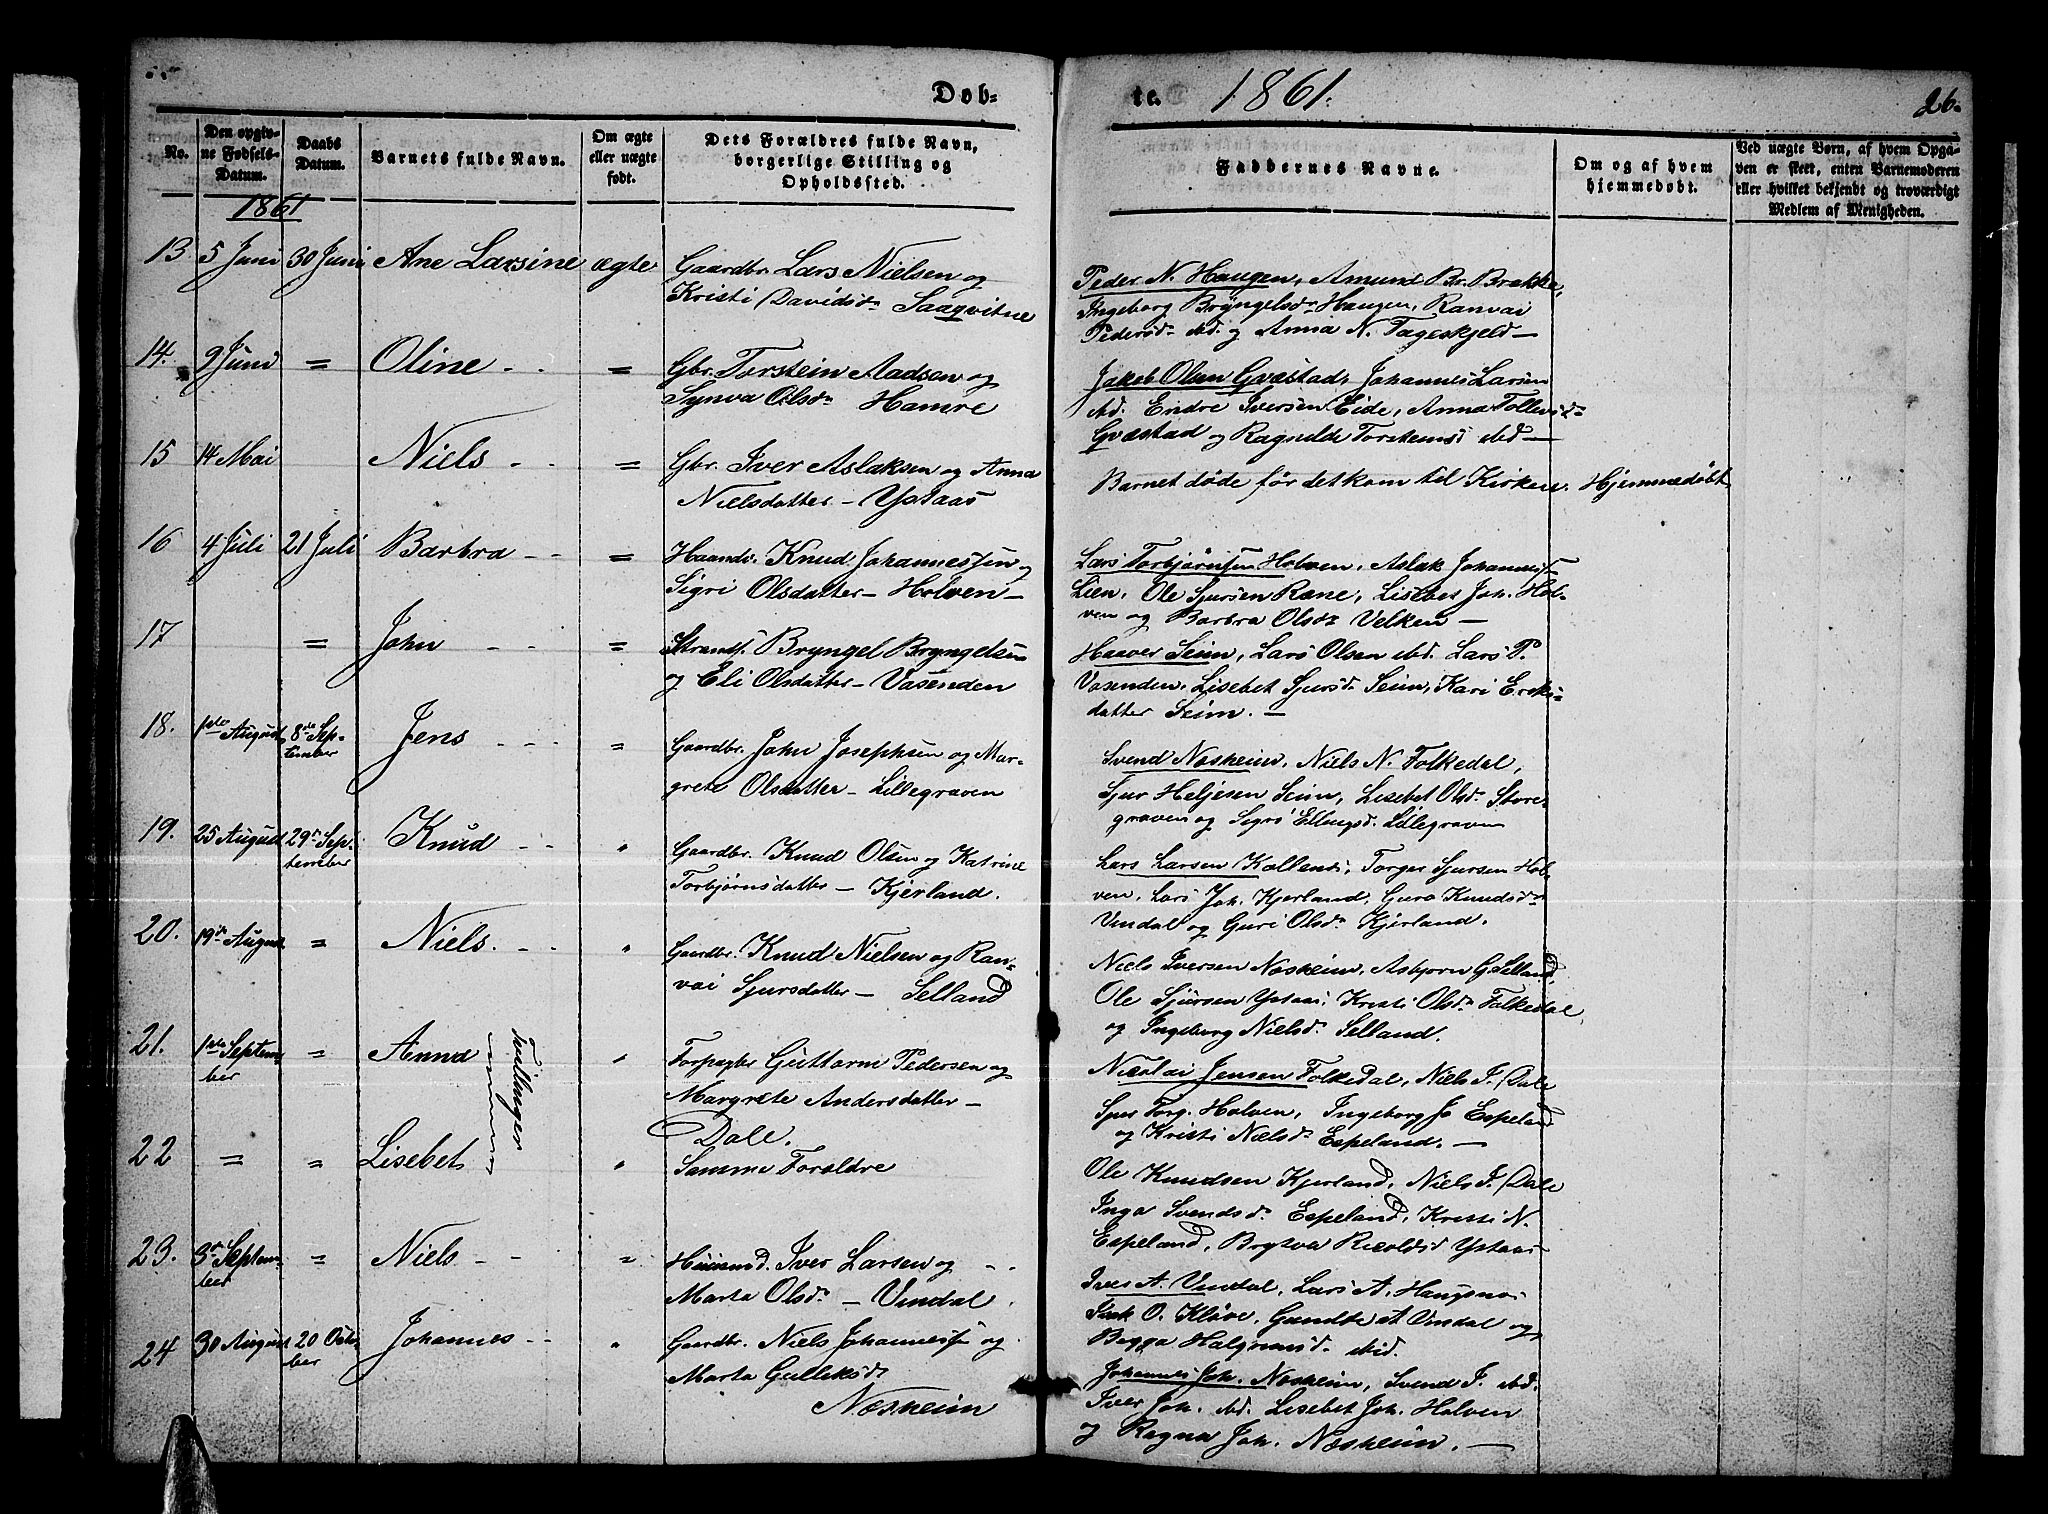 Døb-
te. 1861. 26.
No.
Den opgiv-
ne Fødsels-
Datum.
Daabs
Datum.
Barnets fulde Navn.
Om ægte
eller uægte
født.
Dets Forældres fulde Navn,
borgerlige Stilling og
Opholdssted.
Faddernes Navne.
Om og af hvem
hjemmedøbt.
Ved uægte Børn, af hvem Opga-
ven er skeet, enten Barnemoderen
eller hvilket bekjendt og troværdigt
Medlem af Menigheden.
1861
13 5 Juni 30 Juni Ane Larsine ægte Gaardbr. Lars Nielsen og
Kristi Davidsdr. Saaqvitne
Peder N. Haugen, Amund Br. Brakke,
Ingeborg Bryngelsdr. Haugen, Ranvai
Pedersdr. ibd. og Anna N. Tageskjeld —
14. 9 Juni = Oline - - = Gbr. Torstein Aadsen og
Synva Olsdr. Hamre
Jakob Olsen Gvæstad, Johannes Larsen
ibd. Endre Iversen Eide, Anna Tollevsd.
Gvæstad og Ragnilde Torstensd ibd —
15 14 Mai Niels - - = Gbr. Iver Aslaksen og Anna
Nielsdatter - Ystaas
Barnet døde før det kom til Kirken. Hjemmedøbt.
16 4 Juli 21 Juli Barbra - - = Haandv. Knud Johannessen og
Sigri Olsdatter - Holven -
Lars Torbjørnsen Holven, Aslak Johanness.
Lien, Ole Sjursen Røne, Lisebet Joh. Hol-
ven og Barbra Olsdr. Velken —
17 = John - - = Strands. Bryngel Bryngelsen
og Eli Olsdatter - Vasenden
Haaver Seim, Lars Olsen ibd. Lars P.
Vasenden, Lisebet Sjursd. Seim, Kari Eriks-
datter Seim. —
18. 1ste August 8de Sep-
tember Jens - - - = Gaardbr. John Josephsen og Mar-
grete Olsdatter - Lillegraven
Svend Næsheim, Niels N. Folkedal,
Sjur Heljesen Seim, Lisebet Olsdr. Store-
graven og Sigrø Ellingsd. Lillegraven
19. 25 August 29de Sep-
tember Knud - - " Gaardbr. Knud Olsen og Katrine
Torbjørnsdatter - Kjerland.
Lars Larsen Kolland, Torger Sjursen Hol-
ven, Lars Joh. Kjerland, Guro Knudsdr.
Vindal og Guri Olsdr. Kjerland.
20. 19de August = Niels. - - " Gaardbr. Knud Nielsen og Ran-
vai Sjursdatter - Selland
Niels Iversen Næsheim, Asbjørn G. Selland,
Ole Sjursen Ystaas, Kristi Olsdr. Folkedal,
og Ingeborg Nielsd. Selland.
21. 1ste Septem-
ber = Anna " Forpagter Guttorm Pedersen og
Margrete Andersdatter -
Dale.
Tvillinger
Nicolai Jensen Folkedal, Niels J. Dale
Sjur Torg. Holven, Ingeborg Jo Espeland
og Kristi Nielsdr. Espeland. —
22 = = Lisebet " Samme Forældre
Ole Knudsen Kjerland, Niels J. Dale
Inga Svendsdr. Espeland, Kristi N.
Espeland, Brytva Ystaas
23. 3de Septem-
ber " Niels - - " Huusmd. Iver Larsen og - -
Marta Olsdr. - Vindal
Iver A. Vindal, Lars A. Haugsnæs
Isak O. Kløve, Gundte A Vindal og
Begga Halgrimsdr. ibid.
24 30 August 20 Octo-
ber Johannes - - " Gaardbr. Niels Johanness. og
Marta Gulleksdr.
Næsheim
Johannes Joh. Næsheim, Svend J. ibd.
Iver Joh. ibd. Lisebet Joh. Holven
og Ragna Joh. Næsheim. —